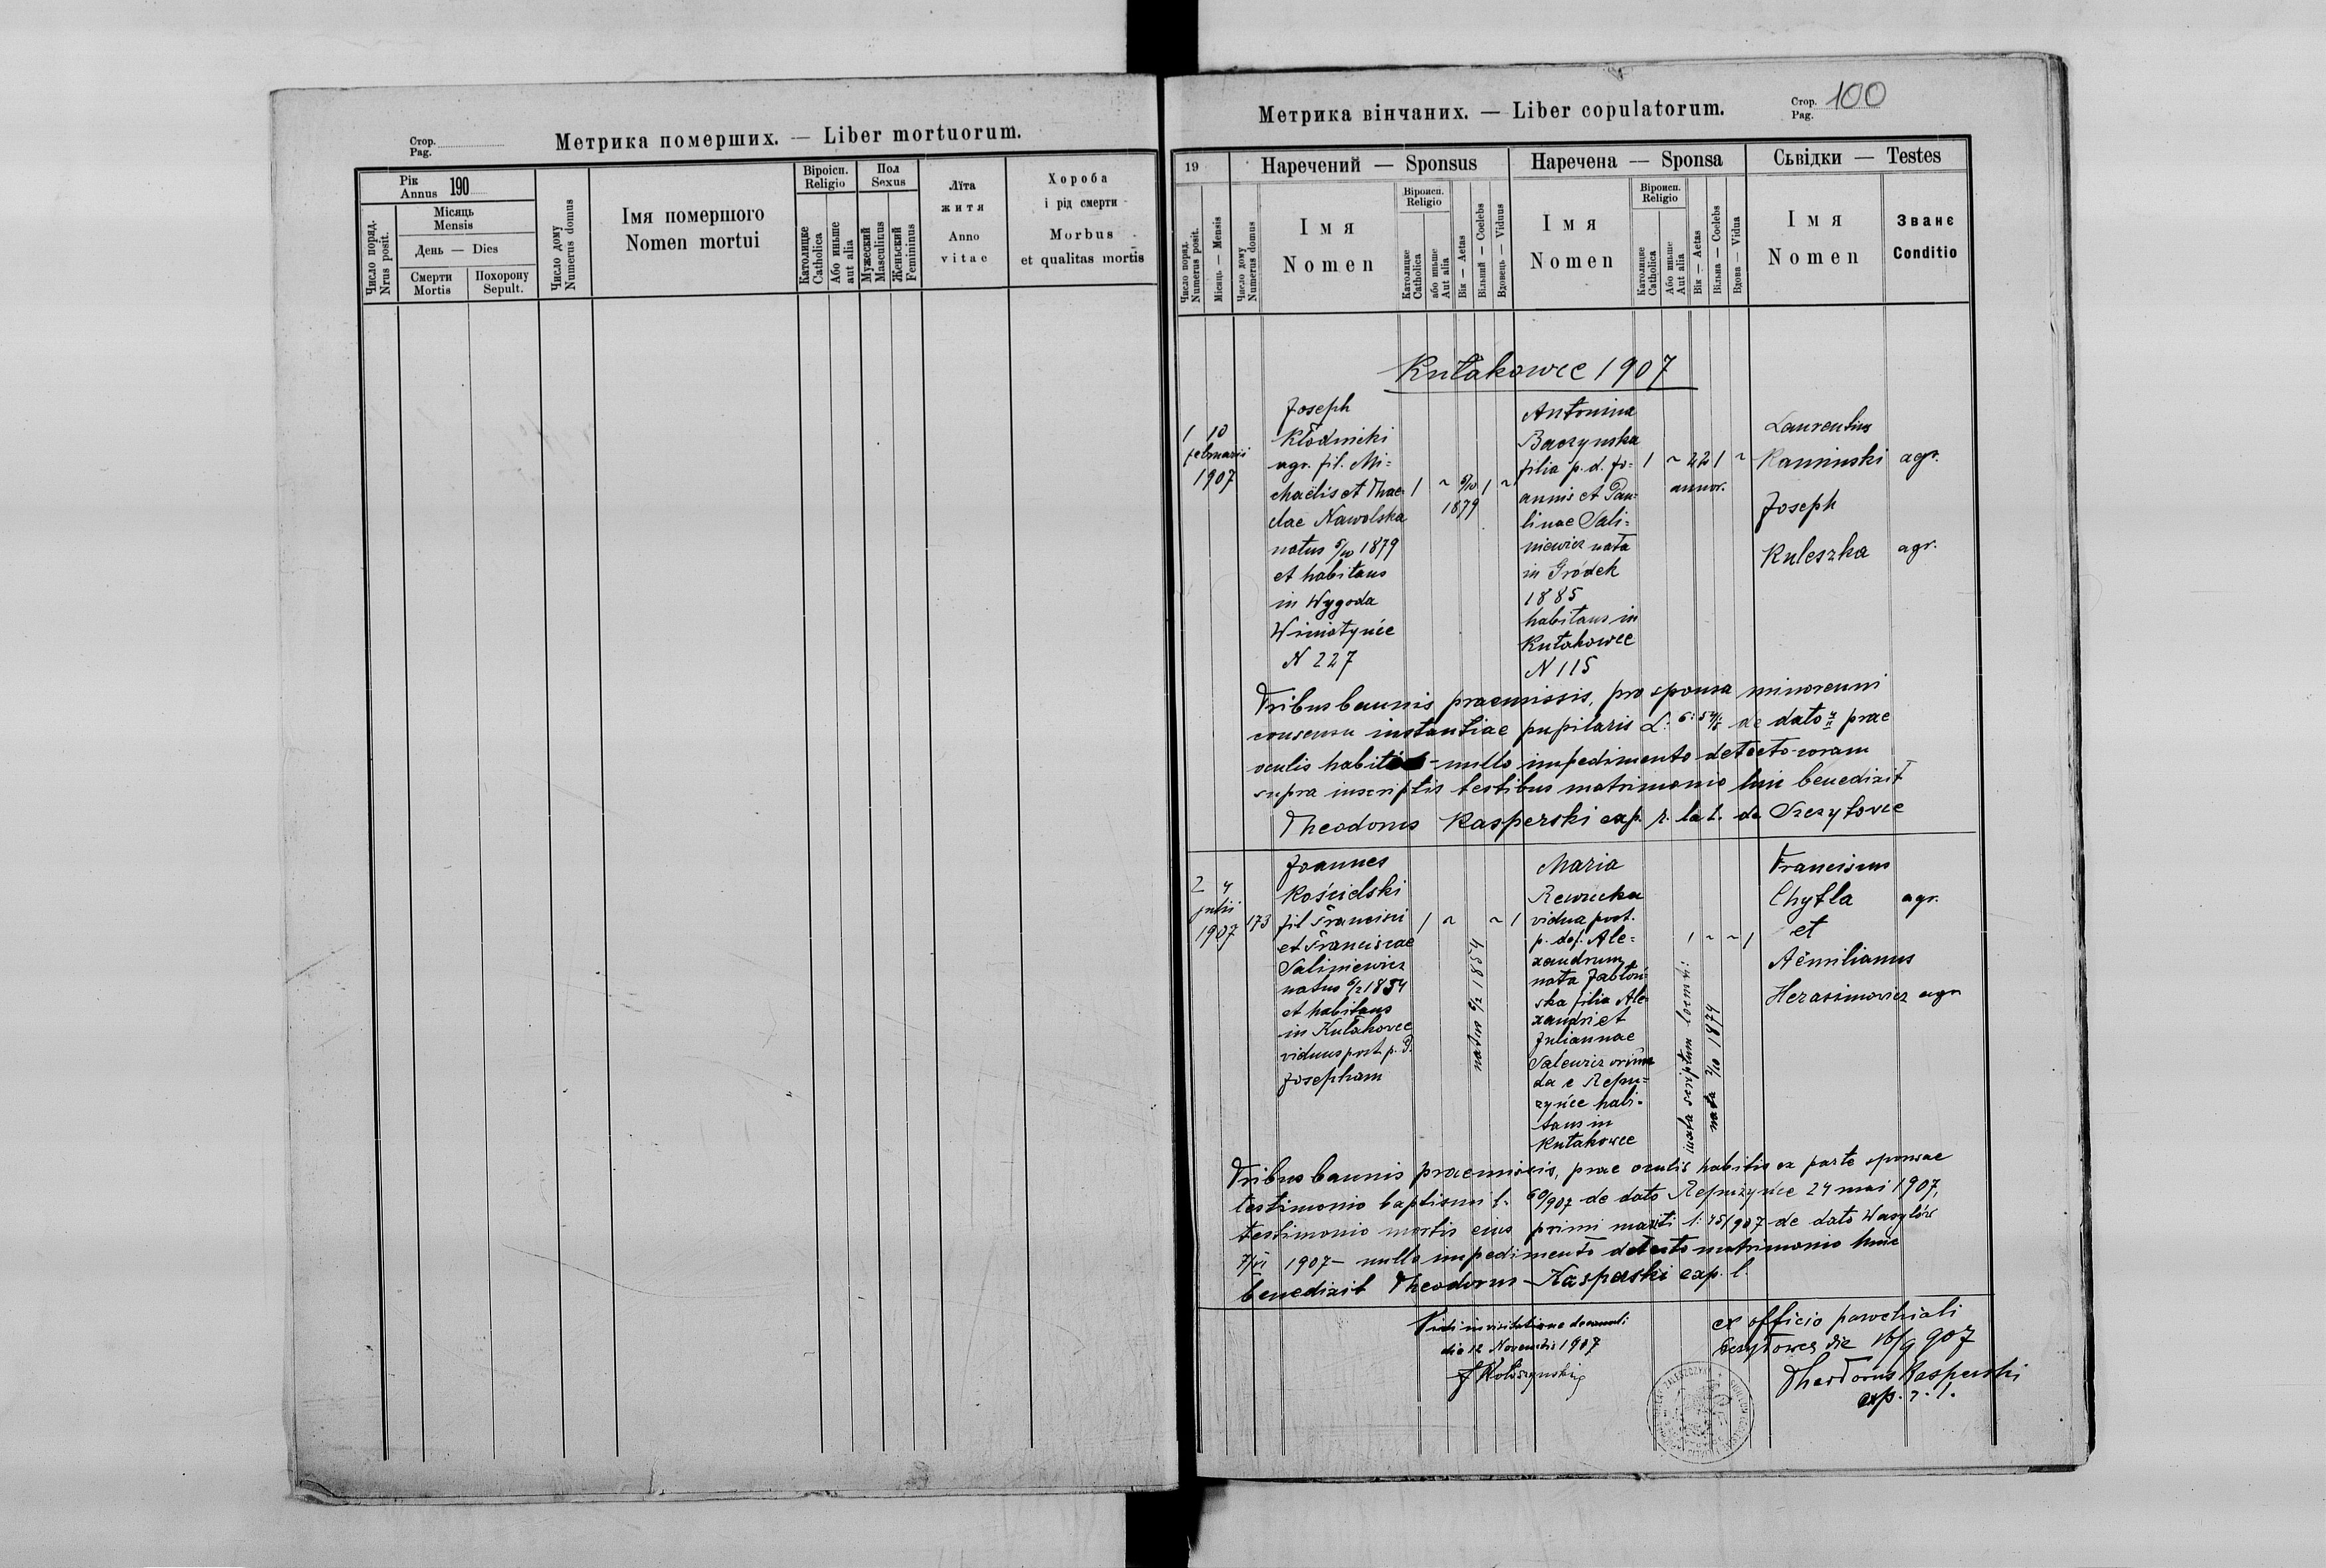 Стор.
Pag.
Метрика померших. — Liber mortuorum.
Рік
Annus 190
Число поряд.
Nrus posit.
Місяць
Mensis
День — Dies
Смерти
Mortis
Похорону
Sepult.
Число дому
Numerus domus
Імя помершого
Nomen mortui
Віроісп.
Religio
Католицке
Catholica
Або иньше
aut alia
Пол
Sexus
Мужеский
Masculinus
Женьский
Femininus
Лїта
житя
Anno
vitae
Хороба
і рід смерти
Morbus
et qualitas mortis
Метрика вінчаних. — Liber copulatorum.
Стор.
Pag. 100
19
Число поряд.
Numerus posit.
Місяць — Mensis
Число дому
Numerus domus
Наречений — Sponsus
Імя
Nomen
Віроисп.
Religio
Католицке
Catholica
або иньше
Aut alia
Вік — Aetas
Вільний — Coelebs
Вдовець — Viduus
Наречена — Sponsa
Імя
Nomen
Віроисп.
Religio
Католицке
Catholica
Або иньше
Aut alia
Вік — Aetas
Вільна — Coelebs
Вдова — Vidua
Сьвідки — Testes
Імя
Nomen
Званє
Conditio
Kułakowce 1907
1 10
februarii
1907
Joseph
Kłodnicki
agr. fil. Mi-
chaëlis et Thae-
clae Nawolska
natus 5/10 1879
et habitans
in Wygoda
Winiatyńce
N 227
1 ~ 5/10 1 ~
1879
Antonina
Baczynska
filia p. d. Jo-
annis et Pau-
linae Sali-
niewicz nata
in Gródek
1885
habitans in
Kułakowce
N 115
1 ~ 22 1 ~
annor.
Laurentius
Kaminski agr.
Joseph
Kuleszka agr.
Tribus bannis praemissis, pro sponsa minorenni
consensu instantiae pupilaris L: de dato prae
oculis habito - nullo impedimento detecto coram
supra inscriptis testibus matrimonio huic benedixit
Theodorus Kasperski exp. r. lat. de Szczytowce
2 4
julii
1907
173
Joannes
Kościelski
fil Francisci
et Franciscae
Saliniewicz
natus 6/2 1854
et habitans
in Kułakowce
viduus post p. d.
Josepham
1 ~ ~ 1
natus 6/2 1854
Maria
Rewucka
vidua post.
p. def. Ale-
xandrum
nata Jabłoń-
ska filia Ale-
xandri et
Juliannae
Salewicz oriun-
da e Repu-
zyńce habi-
tans in
Kułakowce
1 ~ ~ 1
nata 2/10 1874
Franciscus
Chytla agr.
et
Aëmilianus
Herasimowicz agr.
Tribus bannis praemissis, prae oculis habitis ex parte sponsae
testimonio baptismi l. 60/907 de dato Repużyńce 24 mai 1907,
testimonio mortis eius primi mariti l: 45/907 de dato Wasylów
7/VI 1907 — nullo impedimento detecto matrimonio huic
benedixit Theodorus Kasperski exp. l.
Vidi in visitatione decanali
die 12 Novembris 1907
ex officio parochiali
die 16/9 907
Theodorus Kasperski
exp. r. l.